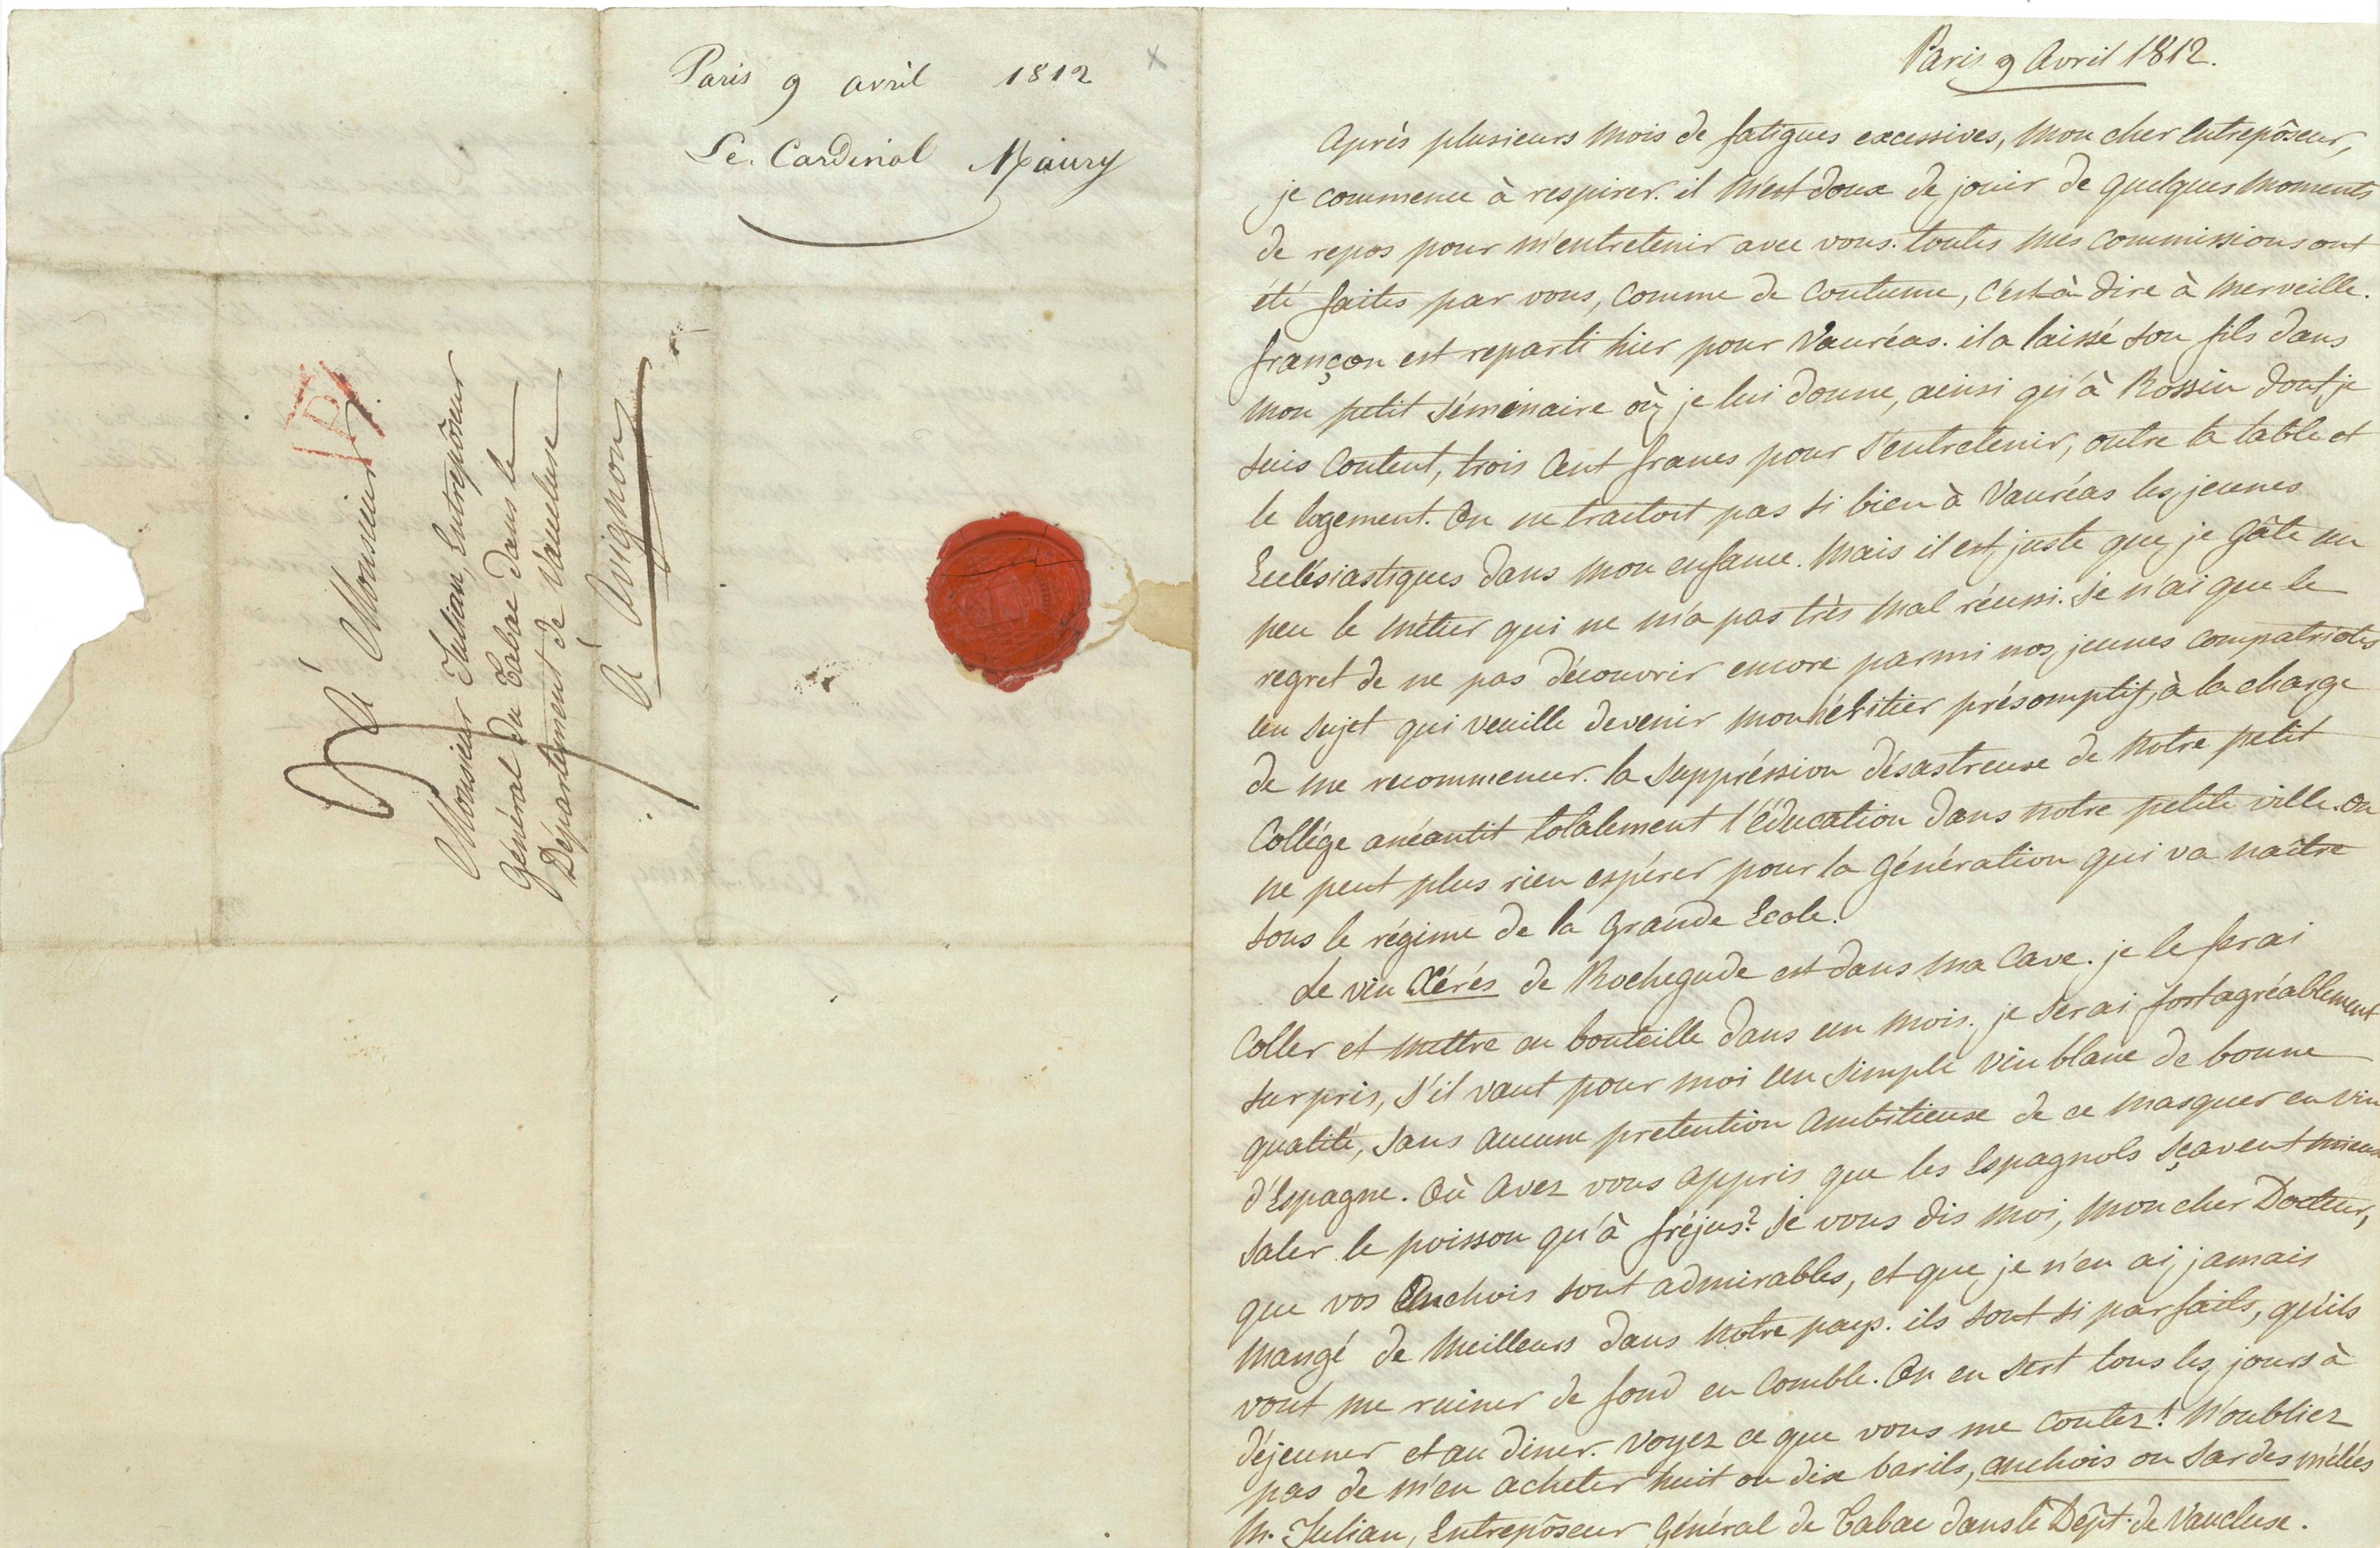 Paris 9 avril 1812
Le Cardinal Maury
P.P.
À Monsieur
Monsieur Julian, Entrepôseur
Général du Tabac dans le
Département de Vaucluse
À Avignon
Paris 9 Avril 1812.
Après plusieurs mois de fatigues excessives, mon cher Entrepôseur,
je commence à respirer. il m'est doux de jouir de quelques moments
de repos pour m'entretenir avec vous. toutes mes commissions ont
été faites par vous, comme de coutume, c'est à dire à merveille.
françon est reparti hier pour Vauréas. il a laissé son fils dans
mon petit séminaire où je lui donne, ainsi qu'à Rossin dont je
suis content, trois cent francs pour s'entretenir, outre la table et
le logement. On ne traitoit pas si bien à Vauréas les jeunes
Ecclésiastiques dans mon enfance. Mais il est juste que je gâte un
peu le métier qui ne m'a pas très mal réussi. Je n'ai que le
regret de ne pas découvrir encore parmi nos jeunes compatriotes
un sujet qui veuille devenir mon héritier présomptif, à la charge
de me recommencer. la suppréssion désastreuse de notre petit
Collége anéantit totalement l'éducation dans notre petite ville. On
ne peut plus rien espérer pour la génération qui va naître
sous le régime de la grande Ecole.
Le vin Xérés de Rochegude est dans ma cave. je le ferai
coller et mettre en bouteille dans un mois. je serai fort agréablement
surpris, s'il vaut pour moi un simple vin blanc de bonne
qualité, sans aucune pretention ambitieuse de ce masquer en vin
d'Espagne. Où avez vous appris que les Espagnols sçavent mieux
saler le poisson qu'à fréjus? Je vous dis moi, mon cher Docteur,
que vos Anchois sont admirables, et que je n'en ai jamais
mangé de meilleurs dans notre pays. ils sont si parfaits, qu'ils
vont me ruiner de fond en comble. On en sert tous les jours à
déjeuner et au diner. Voyez ce que vous me coutez! N'oubliez
pas de m'en acheter huit ou dix barils, anchois ou sardes mélés
M. Julian, Entrepôseur Général de Tabac dans le Dept. de Vaucluse.